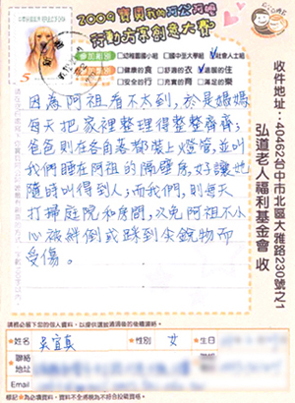 2009寶貝我的阿公阿嬤
行動方案創意大賽
參加組別 □幼稚園國小組 □國中至大學組 ☑社會人士組
□健康的食 □舒適的衣 ☑溫暖的住
□安全的行 □充實的育 □滿足的樂
因為阿祖看不太到，於是媽媽
每天把家裡整理得整整齊齊；
爸爸則在各角落都裝上燈管，並叫
我們睡在阿祖的隔壁房，好讓他
隨時叫得到人；而我們，則每天
打掃庭院和房間，以免阿祖不小
心被絆倒或踩到尖銳物而
受傷。
收件地址：40462台中市北區大雅路230號之1
弘道老人福利基金會 收
請務必留下您的個人資料，以提供講座與消息的後續連絡。
★姓名 吳宜真 ★性別 女 ★生日
★聯絡
地址 ★聯絡
Email
標記★為必填資料，資料不全將視為不符合投稿資格。